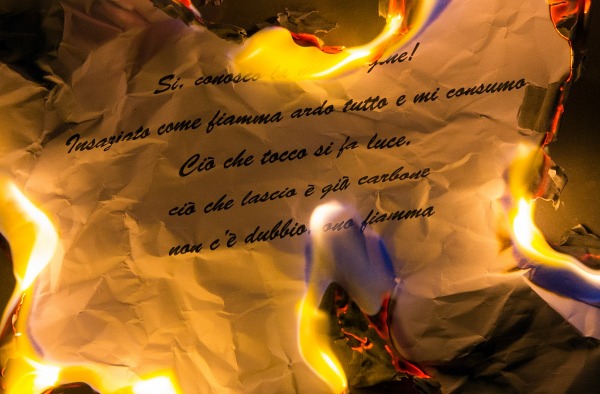 Si, conosco
Insaziato come fiamma ardo tutto e mi consumo
Ciò che tocco si fa luce,
ciò che lascio è già carbone
non c'è dubbio, fiamma